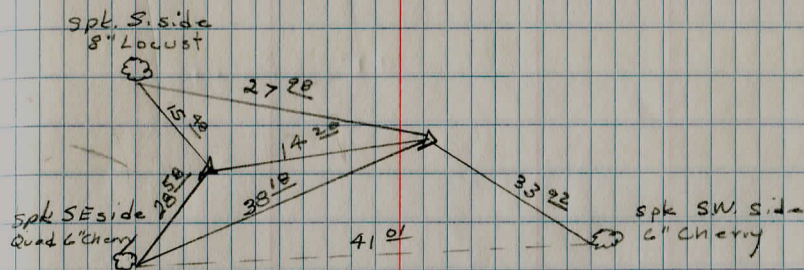 spk. S. side
8" Locust
27 98
15 48
14 28
28 58
38 18
33 92
spk SE side
Quad 6" Cherry
spk S.W. Side
6" Cherry
41 01